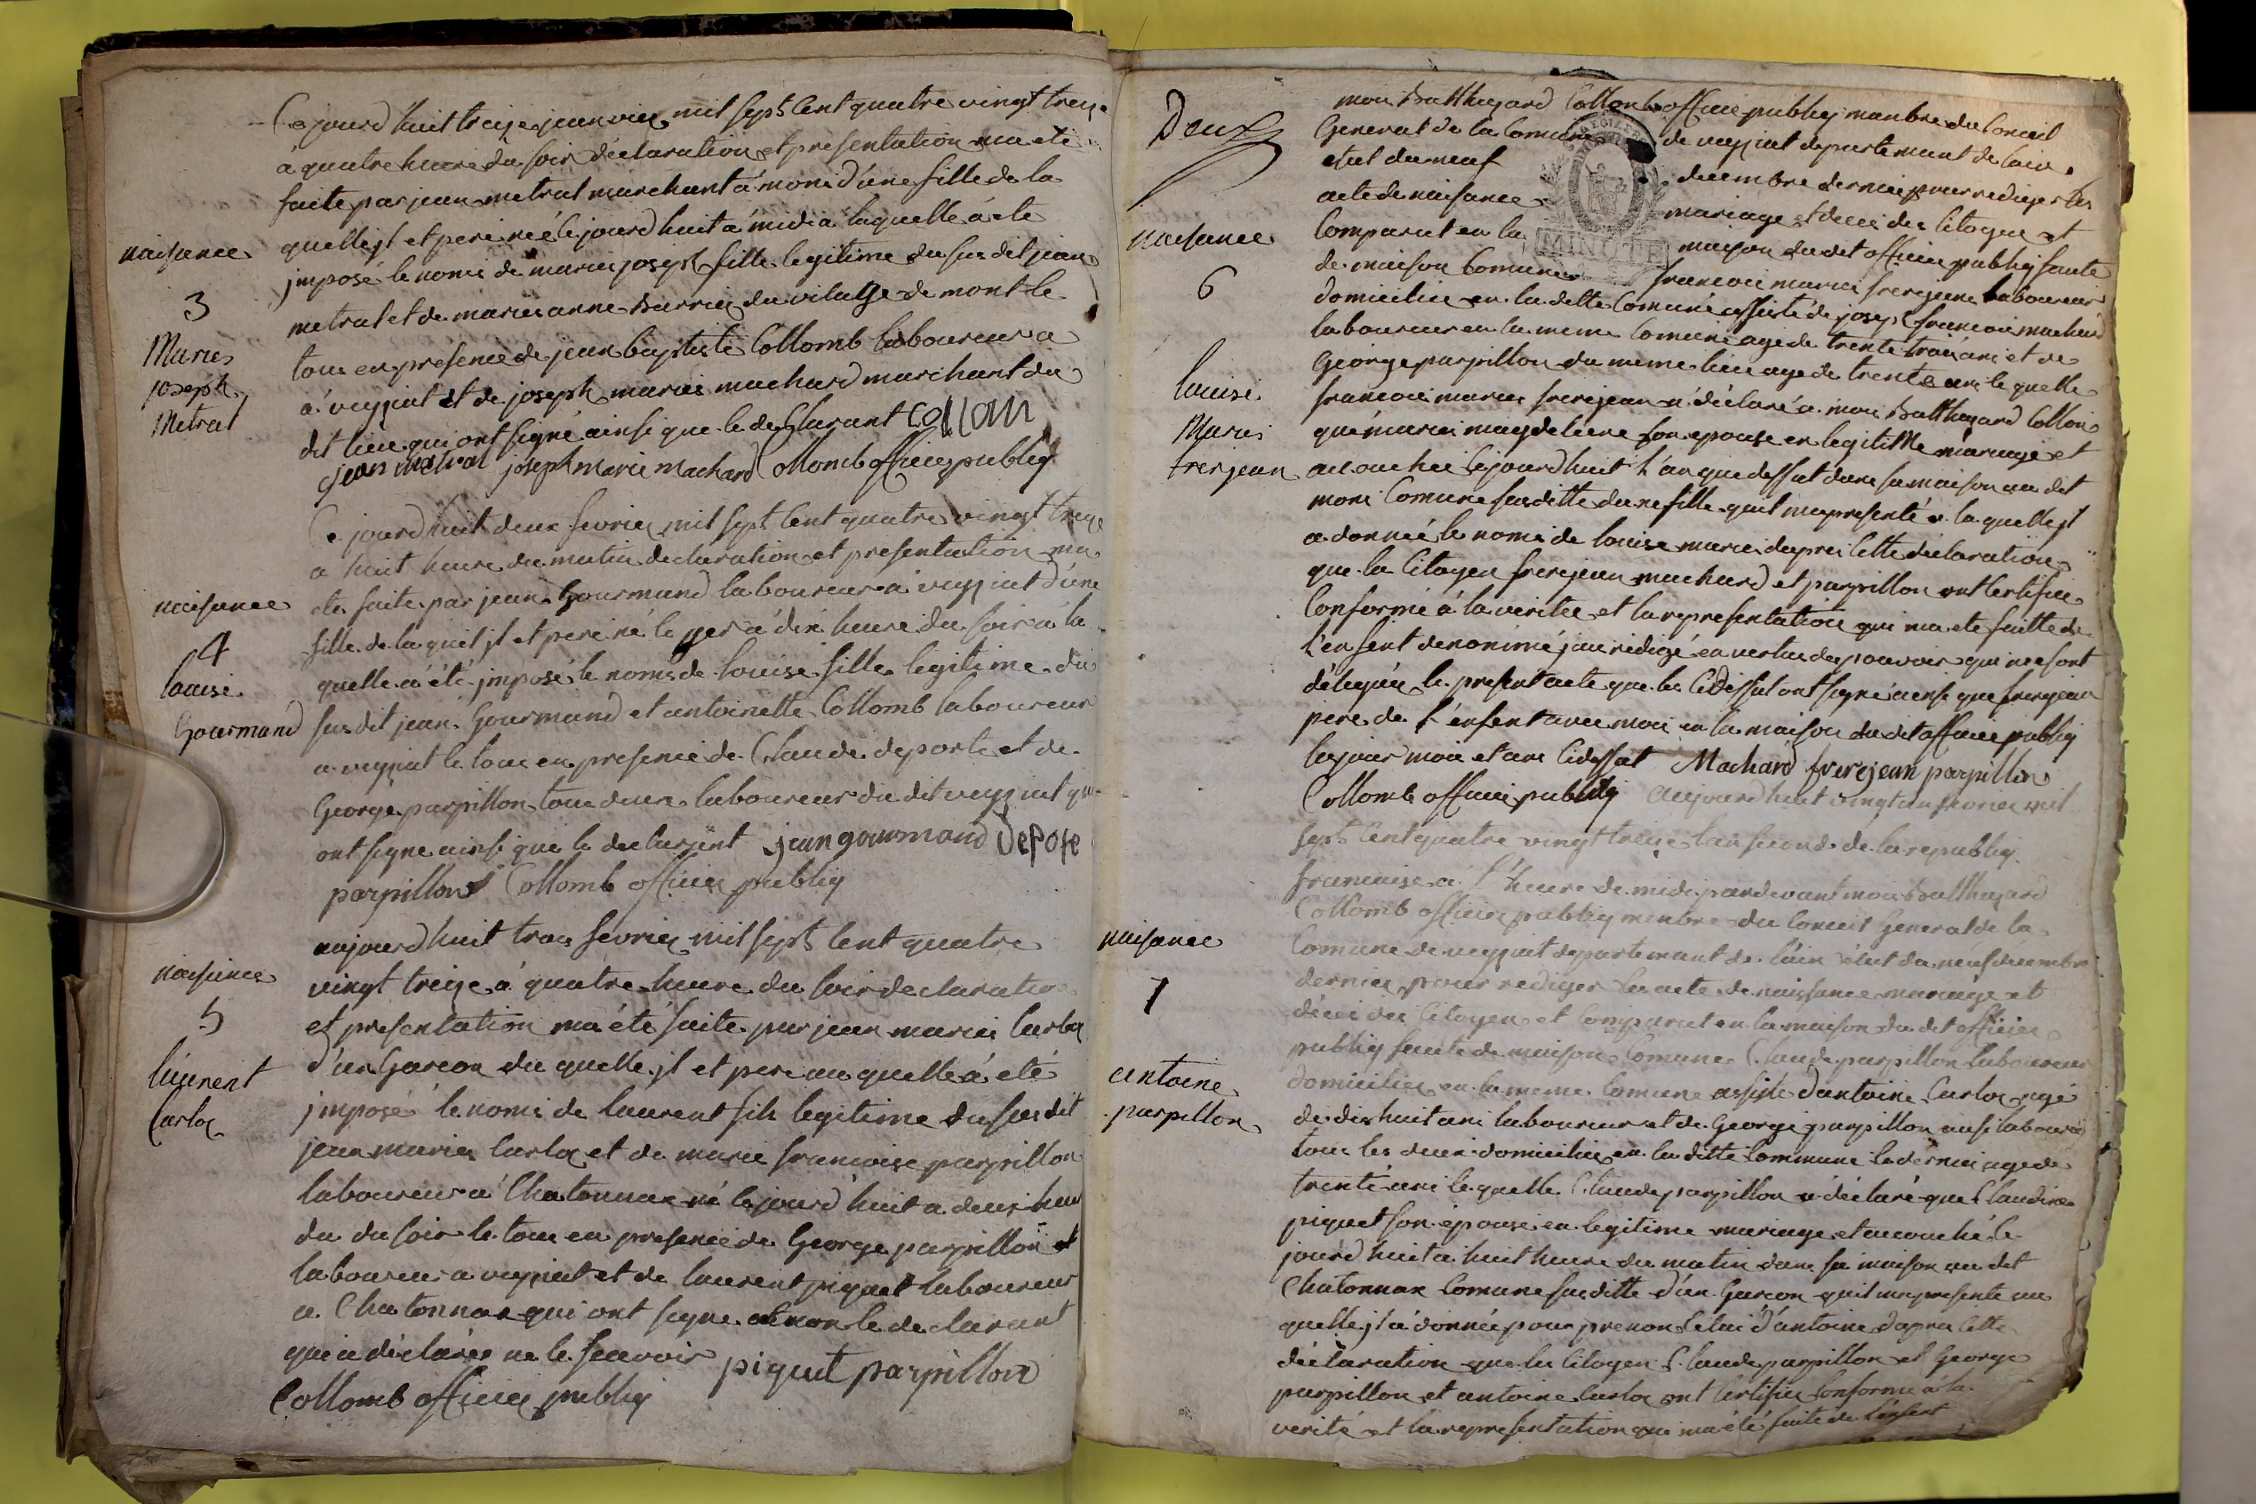 Ce jourd'huit treize jeanvier mil sept Cent quatre vingt treize
à quatre heure du soir déclaration et présentation ma eté
faite par jean metrat marchant a moni d'une fille de la
quelle jl et pere née le jourd'huit a midi a laquelle à eté
jmposé le nomi de marie joseph fille legitime du sus dit jean
metrat et de marie anne Burrier du vilatge de mont le
tout en presence de jean baptiste Collomb laboureur a
à veyziat et de joseph marie machard marchant du
dit lieu qui ont signé ainsi que le declarant Collom
jean metrat joseph marie Machard Collomb officier publiq
naisance
3
Marie
joseph
Metrat
Ce jourd'huit deux fevrier mil sept Cent quatre vingt treize
a huit heure du matin declaration et presentation ma
ete faite par jean Gourmand laboureur à veyziat d'une
fille de la quel jl et pere né le yer à dix heure du soir à la
quelle à été jmposé le nomi de louise fille legitime du
sus dit jean Gourmand et antoinette Collomb laboureur
a veyziat le tout en presence de Claude deporte et de
George parpillon tous deux laboureur du dit veyziat qui
ont signe ainsi que le declarent jean gourmand depote
parpillon Collomb officier publiq
naisance
4
louise
Gourmand
aujourd'huit trois fevrier mil sept Cent quatre
vingt treize à quatre heure du soir declaration
et presentation ma été faite par jean marie Carloz
d'un Garcon du quelle jl et pere au quelle à eté
jmposé le nomi de laurent fils legitime du sus dit
jean marie Carloz et de marie francoise parpillon
laboureur a Chatonnax né le jourd'huit a deux heur
du du soir le tout en presence de George parpillon et
laboureur a veyziat et de laurent piquet laboureur
a Chatonnax qui ont signe et non le declarant
qui a déclarée ne le scavoir piquet parpillon
Collomb officier publiq
naisance
5
laurent
Carloz
Deux
moi Balthazard Collomb officier publiq manbre du Conseil
General de la Comune de veyziat departemant de lain
elut du neuf decembre dernier pour rediger les
acte de naisance mariage et deces des Citoyen et
Comparut en la maison du dit officier publiq faute
de maison Comune francois marie frerejean laboureur
domicilie en la ditte Comune assisté de joseph francois machard
laboureur en la meme Comune agé de trente trois ans et de
George parpillon du meme lieu age de trente ans le quelle
francois marie frerejean a déclaré a moi Balthazard Collon
que marie magdeleine son epouse en legitime mariage et
acouchee le jourd'huit l'an que dessut dans sa maison au dit
moni Comune susditte d'une fille quil ma presenté a la quelle jl
a donnée le nomi de louise marie dapres Cette déclaration
que la Citoyen frerejean machard et parpillon ont Certifiee
Conforme à la veritée et la representation qui ma ete faitte de
l'enfent denommé jai redigé en vertu du pouvoir qui me sont
délegués le present acte que les Cidessut ont signé ainsi que frerejean
pere de l'enfent avec moi en la maison du dit officier publiq
les jour moi et ans Cidessut Machard frerejean parpillon
Collomb officier publiq aujourd'huit vingt un fevrier mil
sept Cent quatre vingt treize lan second de la republiq
francaise a l'heure de midi pardevant moi Balthazard
Collomb officier publiq menbre du Conseil General de la
Comune de veyziat departemant de l'ain élut du neuf decembre
dernier pour rediger les acte de naissance mariage et
déces des Citoyen et Comparut en la maison du dit officier
publiq faute de maison Comune Claude parpillon laboureur
domicilie en la meme Comune assisté d'antoine Carloz agé
de dix huit ans laboureur et de George parpillon ausi laboureur
tous les deux domicilie en la ditte Commune le dernier agé de
trente ans le quelle Claude parpillon a déclaré que Claudine
piquet son épouse en legitime mariage et acouché le
jourd'huit a huit heure du matin dans sa maison au dit
Chatonnax Comune susditte d'un Garcon quil ma presenté au
quelle jl a donnée pour prenon Celui d'antoine dapres Cette
déclaration que les Citoyen Claude parpillon et George
parpillon et antoine Carloz ont Certifiée Conforme à la
verité et la representation qui ma été faite de l'enfent
naisance
6
louise
Marie
frerjean
naisance
7
antoine
parpillon
MINUTE